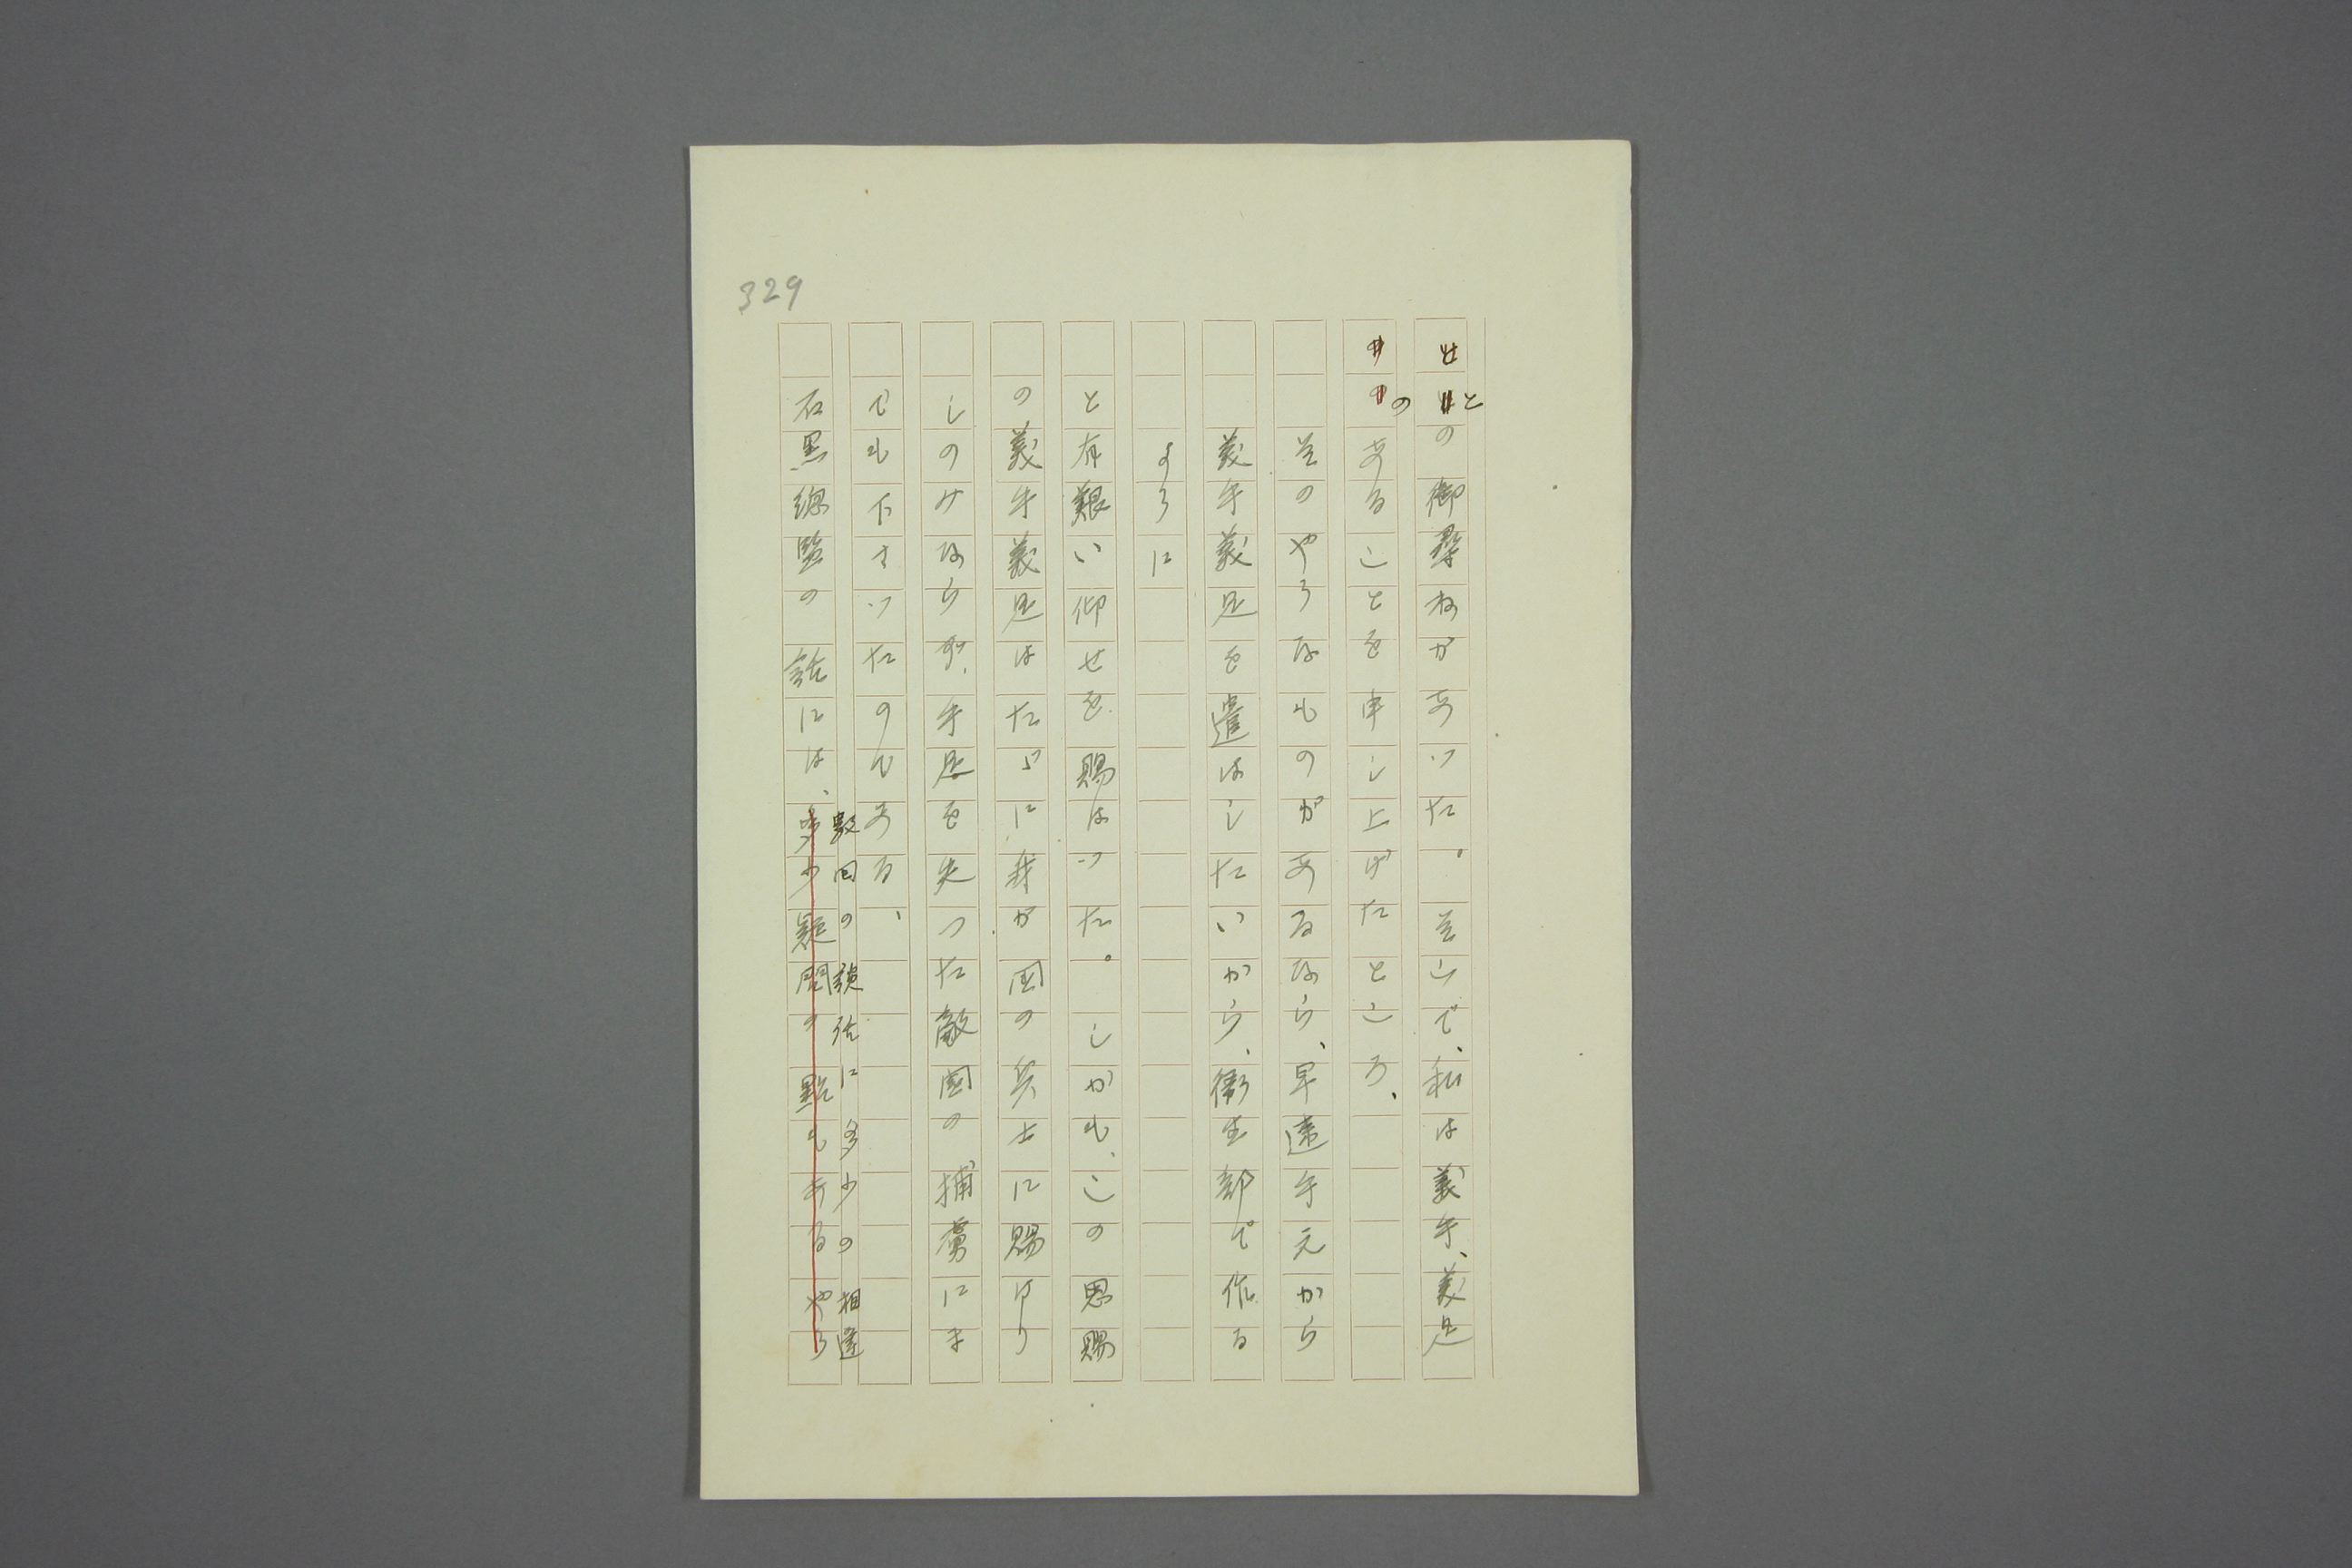 329
との御尋ねがあつた。そこで、私は義手、義足
のあることを申し上げたところ、
そのやうなものがあるなら、早速手元から
義手義足を遣はしたいから、衞生部で作る
ように
と有難い仰せを賜はつた。しかも、この恩賜
の義手義足はたゞに我が国の兵士に賜はり
しのみならず、手足を失つた敵國の捕虜にま
でも下さつたのである、
数回の談話に多少の相違
石黒總監の話には、多少疑問の點もあるやう